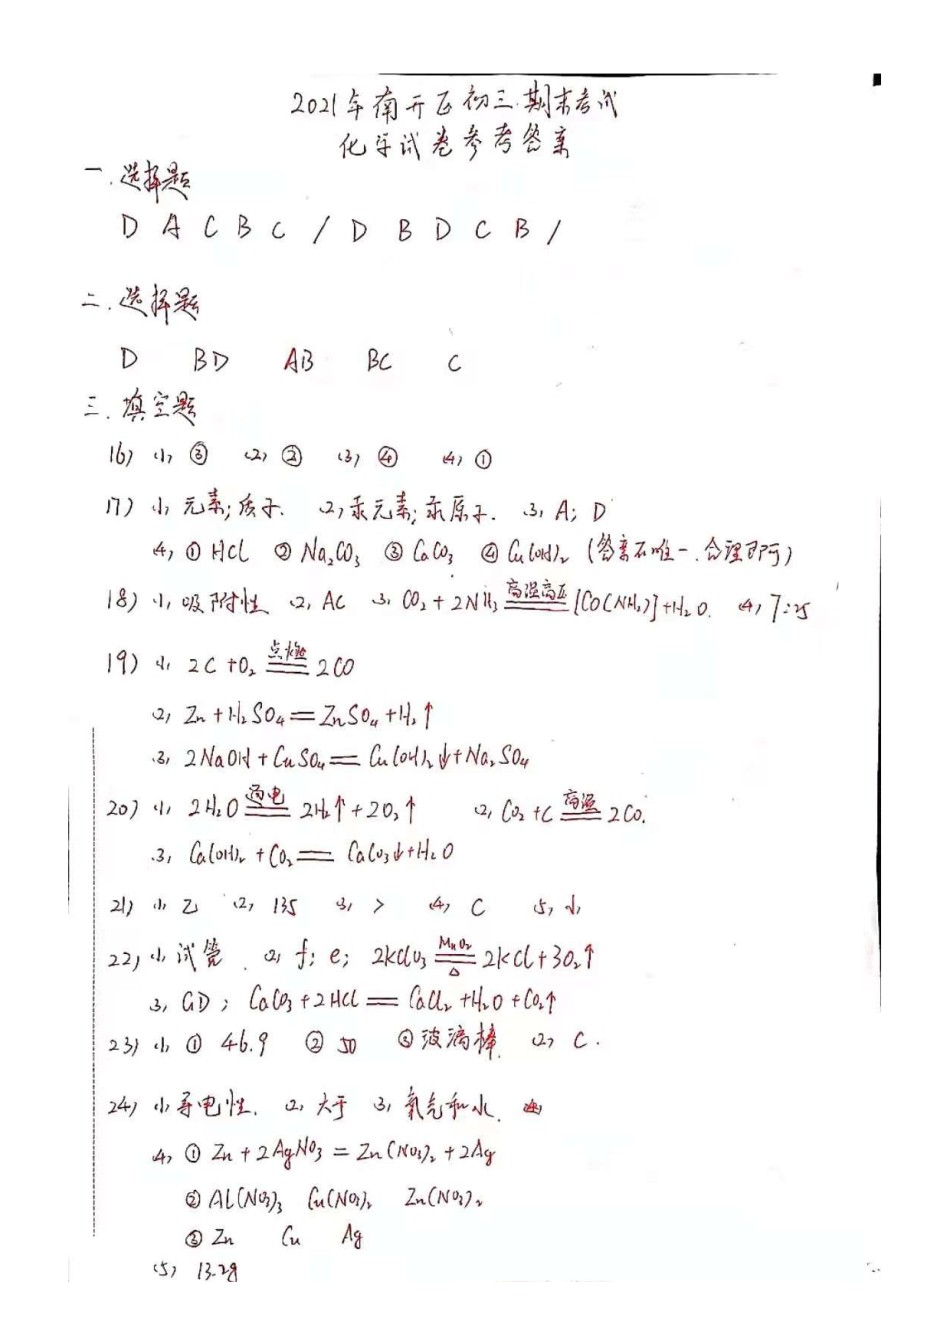 2021年南开区初三期末考试
化学试卷参考答案
一.选择题
D A C B C / D B D C B /
二.选择题
D BD AB BC C
三.填空题
16) (1) ③ (2) ② (3) ④ (4) ①
17) (1) 元素;质子. (2) 汞元素;汞原子. (3) A; D
(4) ① HCl ② Na₂CO₃ ③ CaCO₃ ④ Cu(OH)₂ (答案不唯一.合理即可)
18) (1) 吸附性 (2) AC (3) CO₂+2NH₃ 高温高压 [CO(NH₂)]+H₂O. (4) 7:25
19) (1) 2C+O₂ 点燃 2CO
(2) Zn+H₂SO₄=ZnSO₄+H₂↑
(3) 2NaOH+CuSO₄=Cu(OH)₂↓+Na₂SO₄
20) (1) 2H₂O 通电 2H₂↑+2O₂↑ (2) CO₂+C 高温 2CO.
(3) Ca(OH)₂+CO₂=CaCO₃↓+H₂O
21) (1) 乙 (2) 135 (3) > (4) C (5) 小
22) (1) 试管. (2) f; e; 2KClO₃ MnO₂ △ 2KCl+3O₂↑
(3) GD; CaCO₃+2HCl=CaCl₂+H₂O+CO₂↑
23) (1) ① 46.9 ② 50 ③ 玻璃棒 (2) C.
24) (1) 导电性. (2) 大于 (3) 氧气和水.
(4) ① Zn+2AgNO₃=Zn(NO₃)₂+2Ag
② Al(NO₃)₃ Cu(NO₃)₂ Zn(NO₃)₂
③ Zn Cu Ag
(5) 13.2g